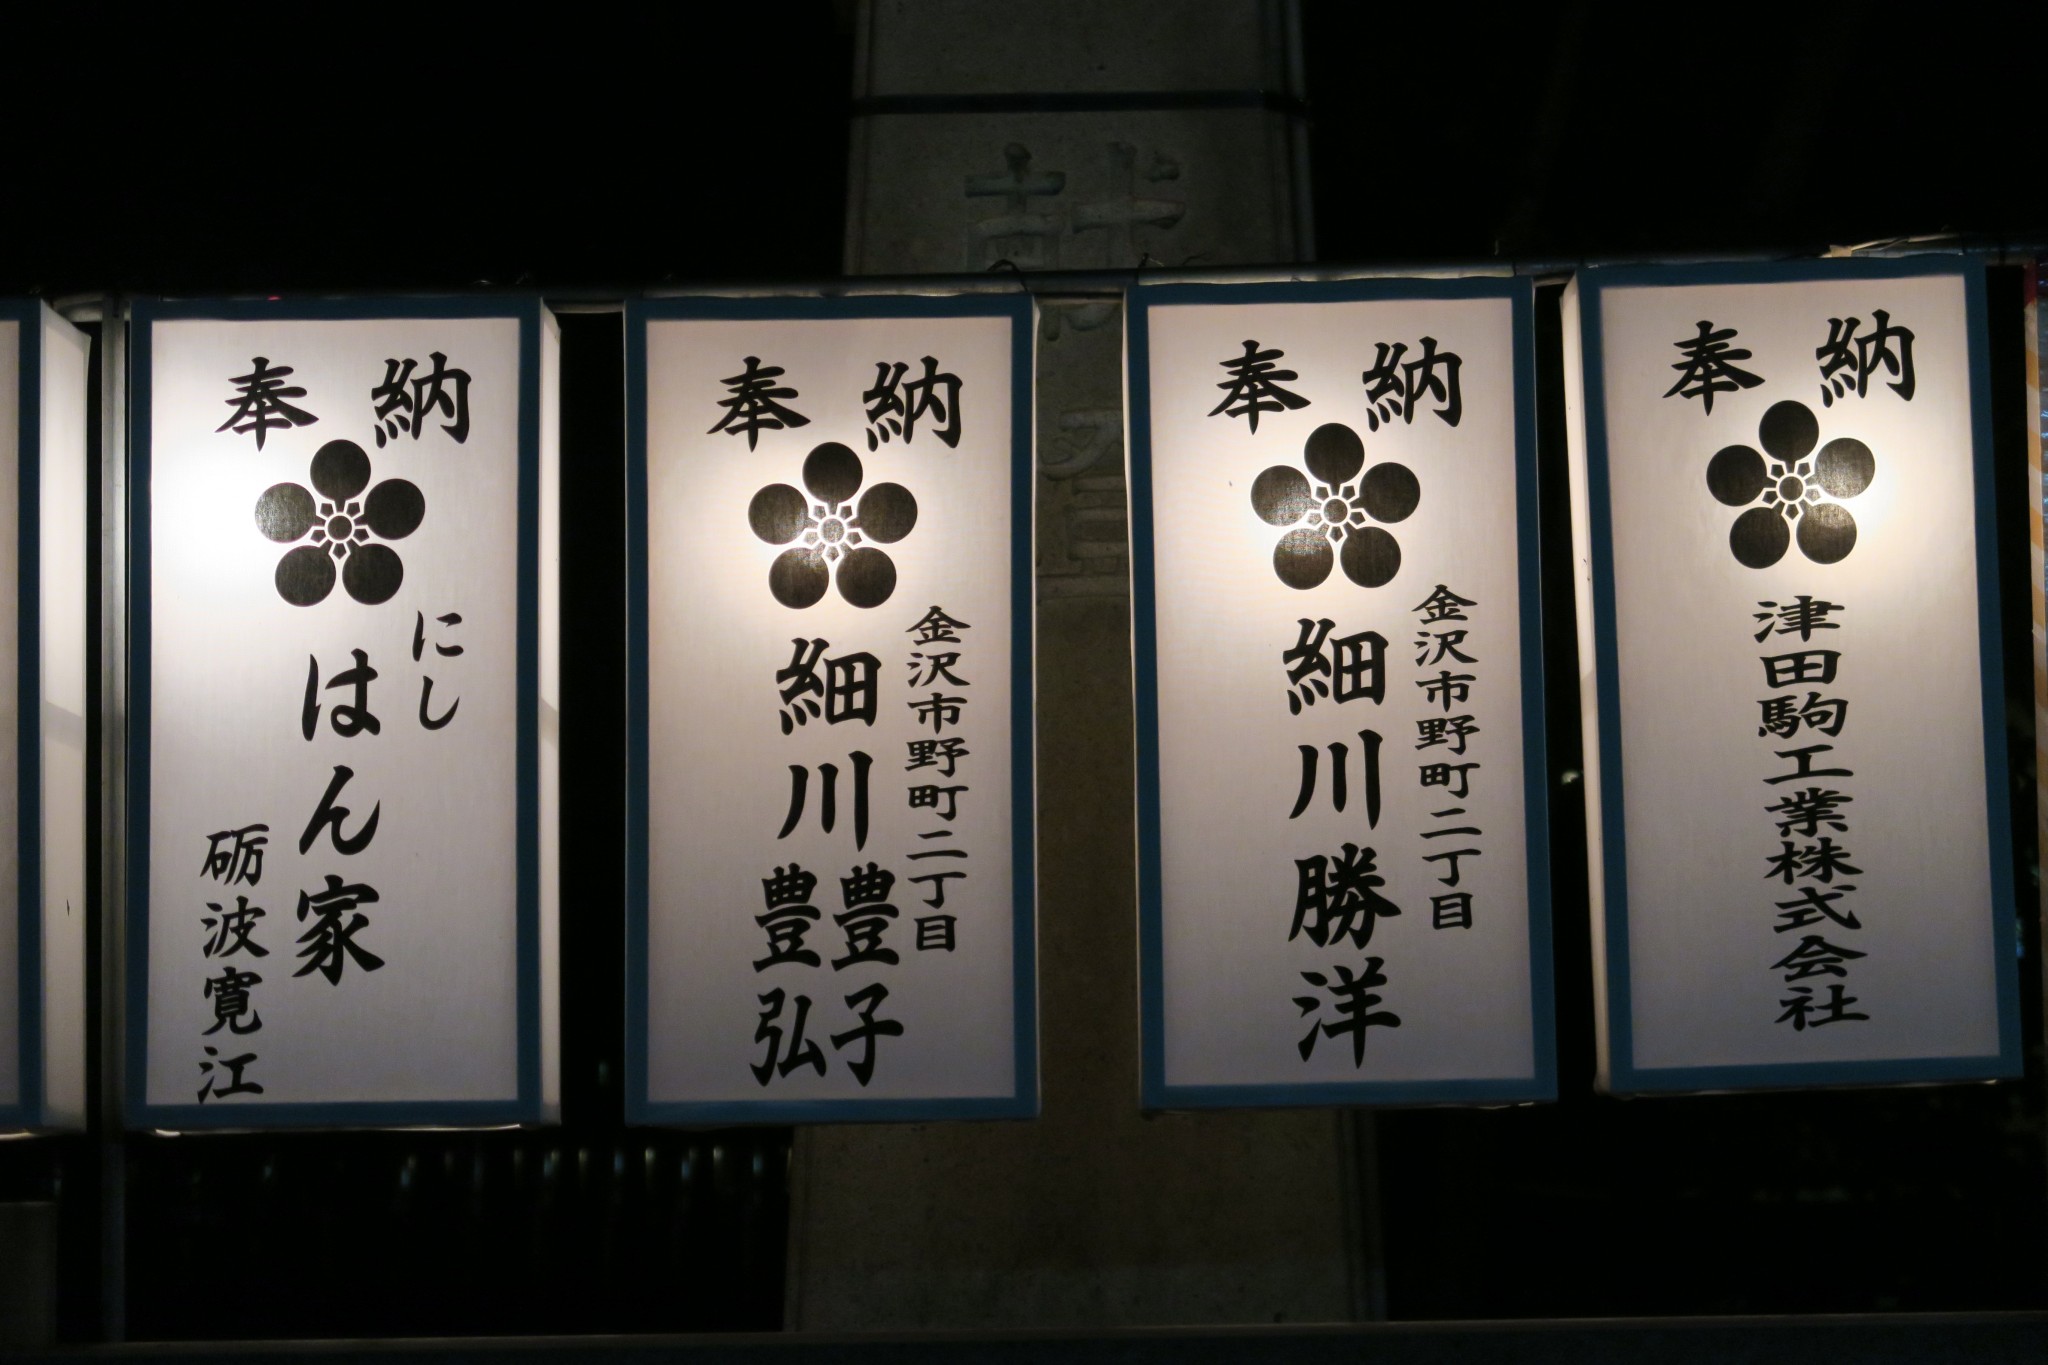 献
奉納
にし
はん家
砺波寛江
奉納
金沢市野町二丁目
細川
豊子
豊弘
奉納
金沢市野町二丁目
細川勝洋
奉納
津田駒工業株式会社